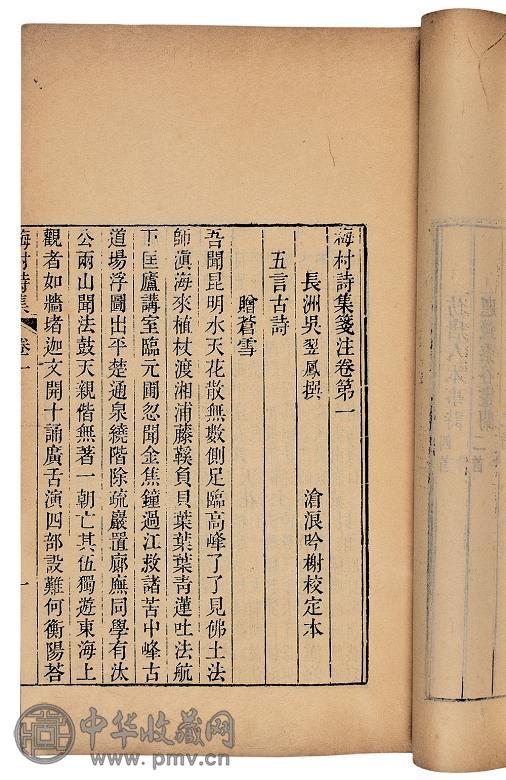 梅村詩集箋注卷第一
長洲吳翌鳳撰 滄浪吟榭校定本
五言古詩
贈蒼雪
吾聞昆明水天花散無數側足臨高峰了了見佛土法
師滇海來植杖渡湘浦藤鞵負貝葉葉葉青蓮吐法航
下匡廬講室臨元圃忽聞金焦鐘過江救諸苦中峰古
道場浮圖出平楚通泉繞階除疏巖置廊廡同學有汰
公兩山聞法鼓天親偕無著一朝亡其伍獨遊東海上
觀者如牆堵迦文開十誦廣舌演四部設難何衡陽荅
梅村詩集 卷一 一
中华收藏网
www.pmv.cn